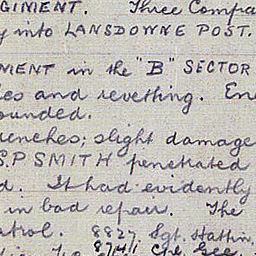 GINIENT. Three Compa
y into LANSDOWNE POST.
NIENT in the "B" SECTOR
es and revetting. En
ounded.
enches; slight damage
S.P SMITH penetrated
d. It had evidently
in bad repair. The
atrol. 8827 Sgt. Hattin,
Cpl. Gee,